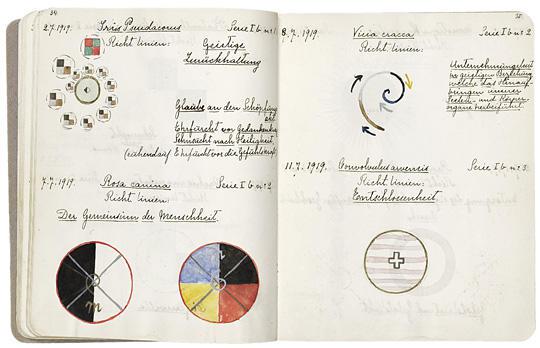 34.
2.7.1919. Iris Pseudacorus Serie I b. nr 1
Richtlinien:
Geistige
Zurückhaltung
Glaube an den Schöpfung
Ehrfurcht vor Gedanken
Sehnsucht nach Heiligkeit.
Ehrfurcht vor die Gefühlskraft
7.7.1919. Rosa canina Serie I b. nr 2
Richtlinien:
Der Gemeinsinn der Menschheit.
35.
8.7.1919. Vicia cracca Serie I b. nr 2
Richtlinien:
Unternehmungslust
in geistigen Beziehung
welche das
unserer
Seelen- und Körper
organe herbeiführt.
11.7.1919. Convolvulus arvensis Serie I b. nr 3
Richtlinien:
Entschlossenheit